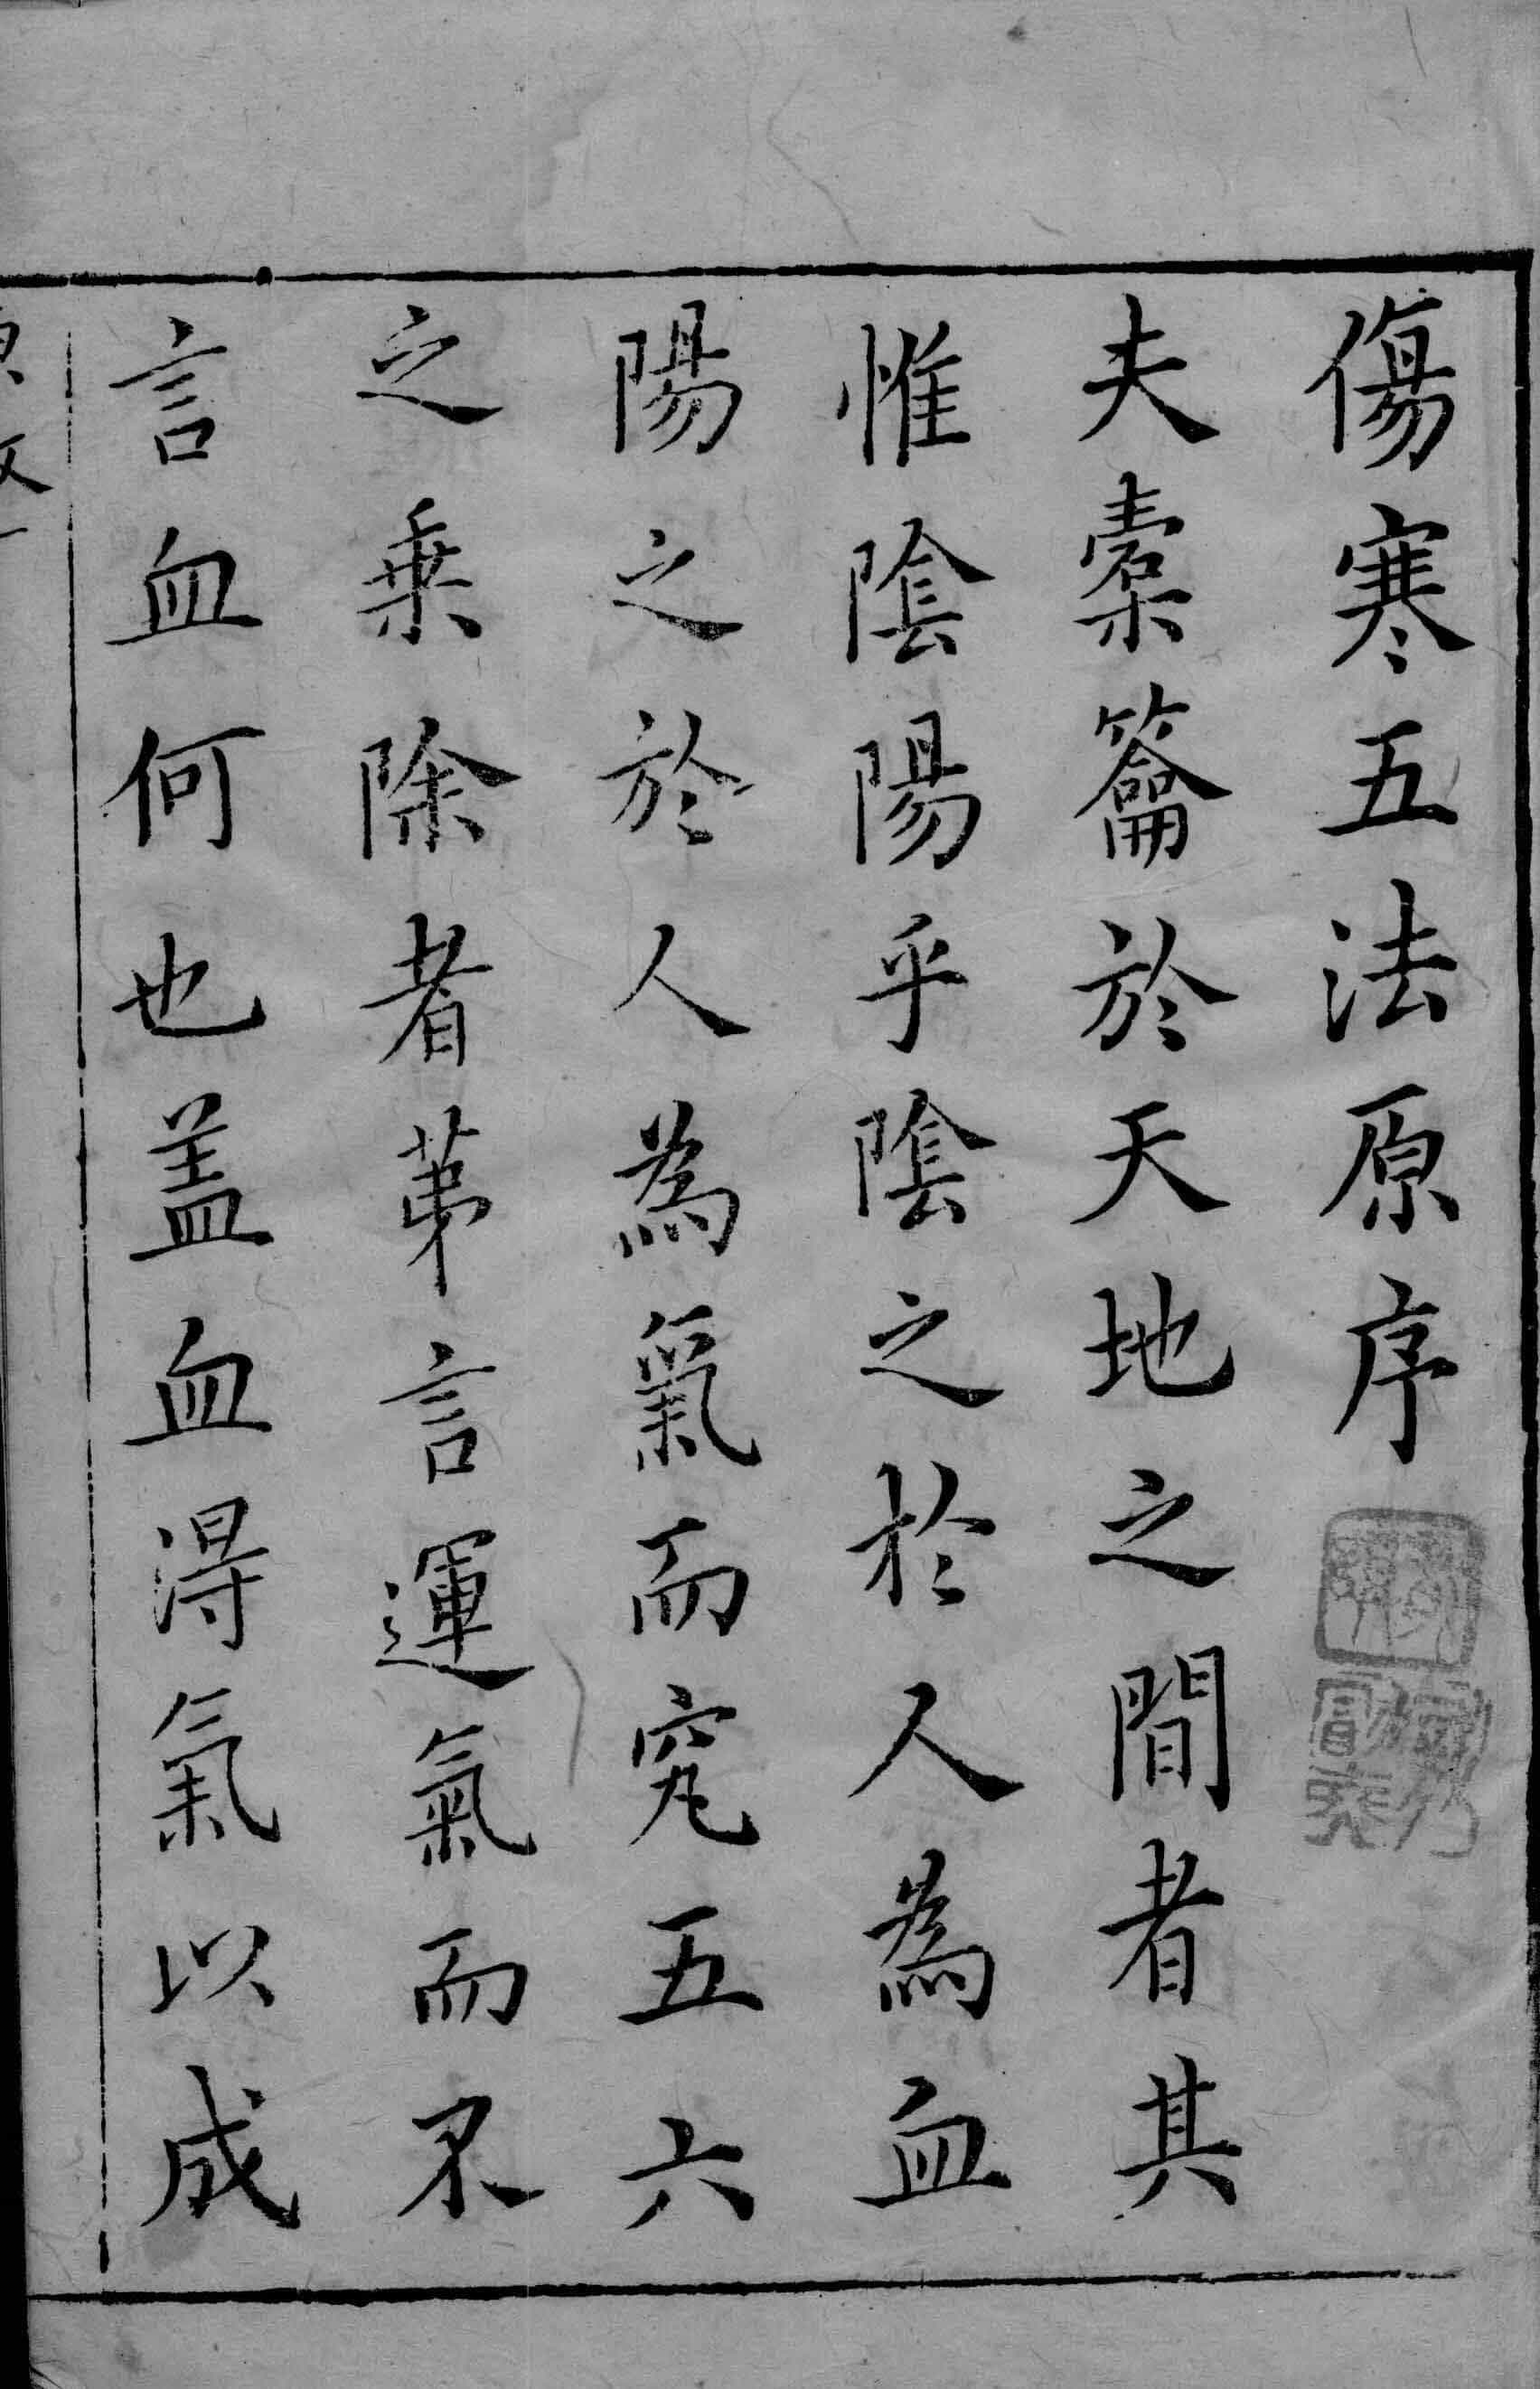 傷寒五法原序
夫橐籥於天地之間者其
惟陰陽乎陰之於人為血
陽之於人為氣而究五六
之乗除者苐言運氣而不
言血何也盖血得氣以成